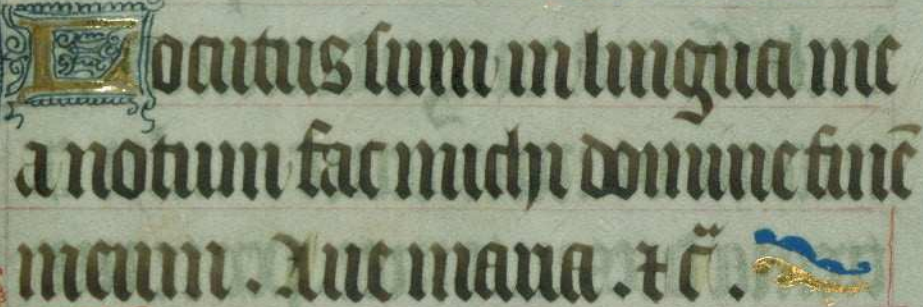 Locutus sum in lingua me
a notum fac michi domine finē
meum. Aue maria. ⁊ c̃.